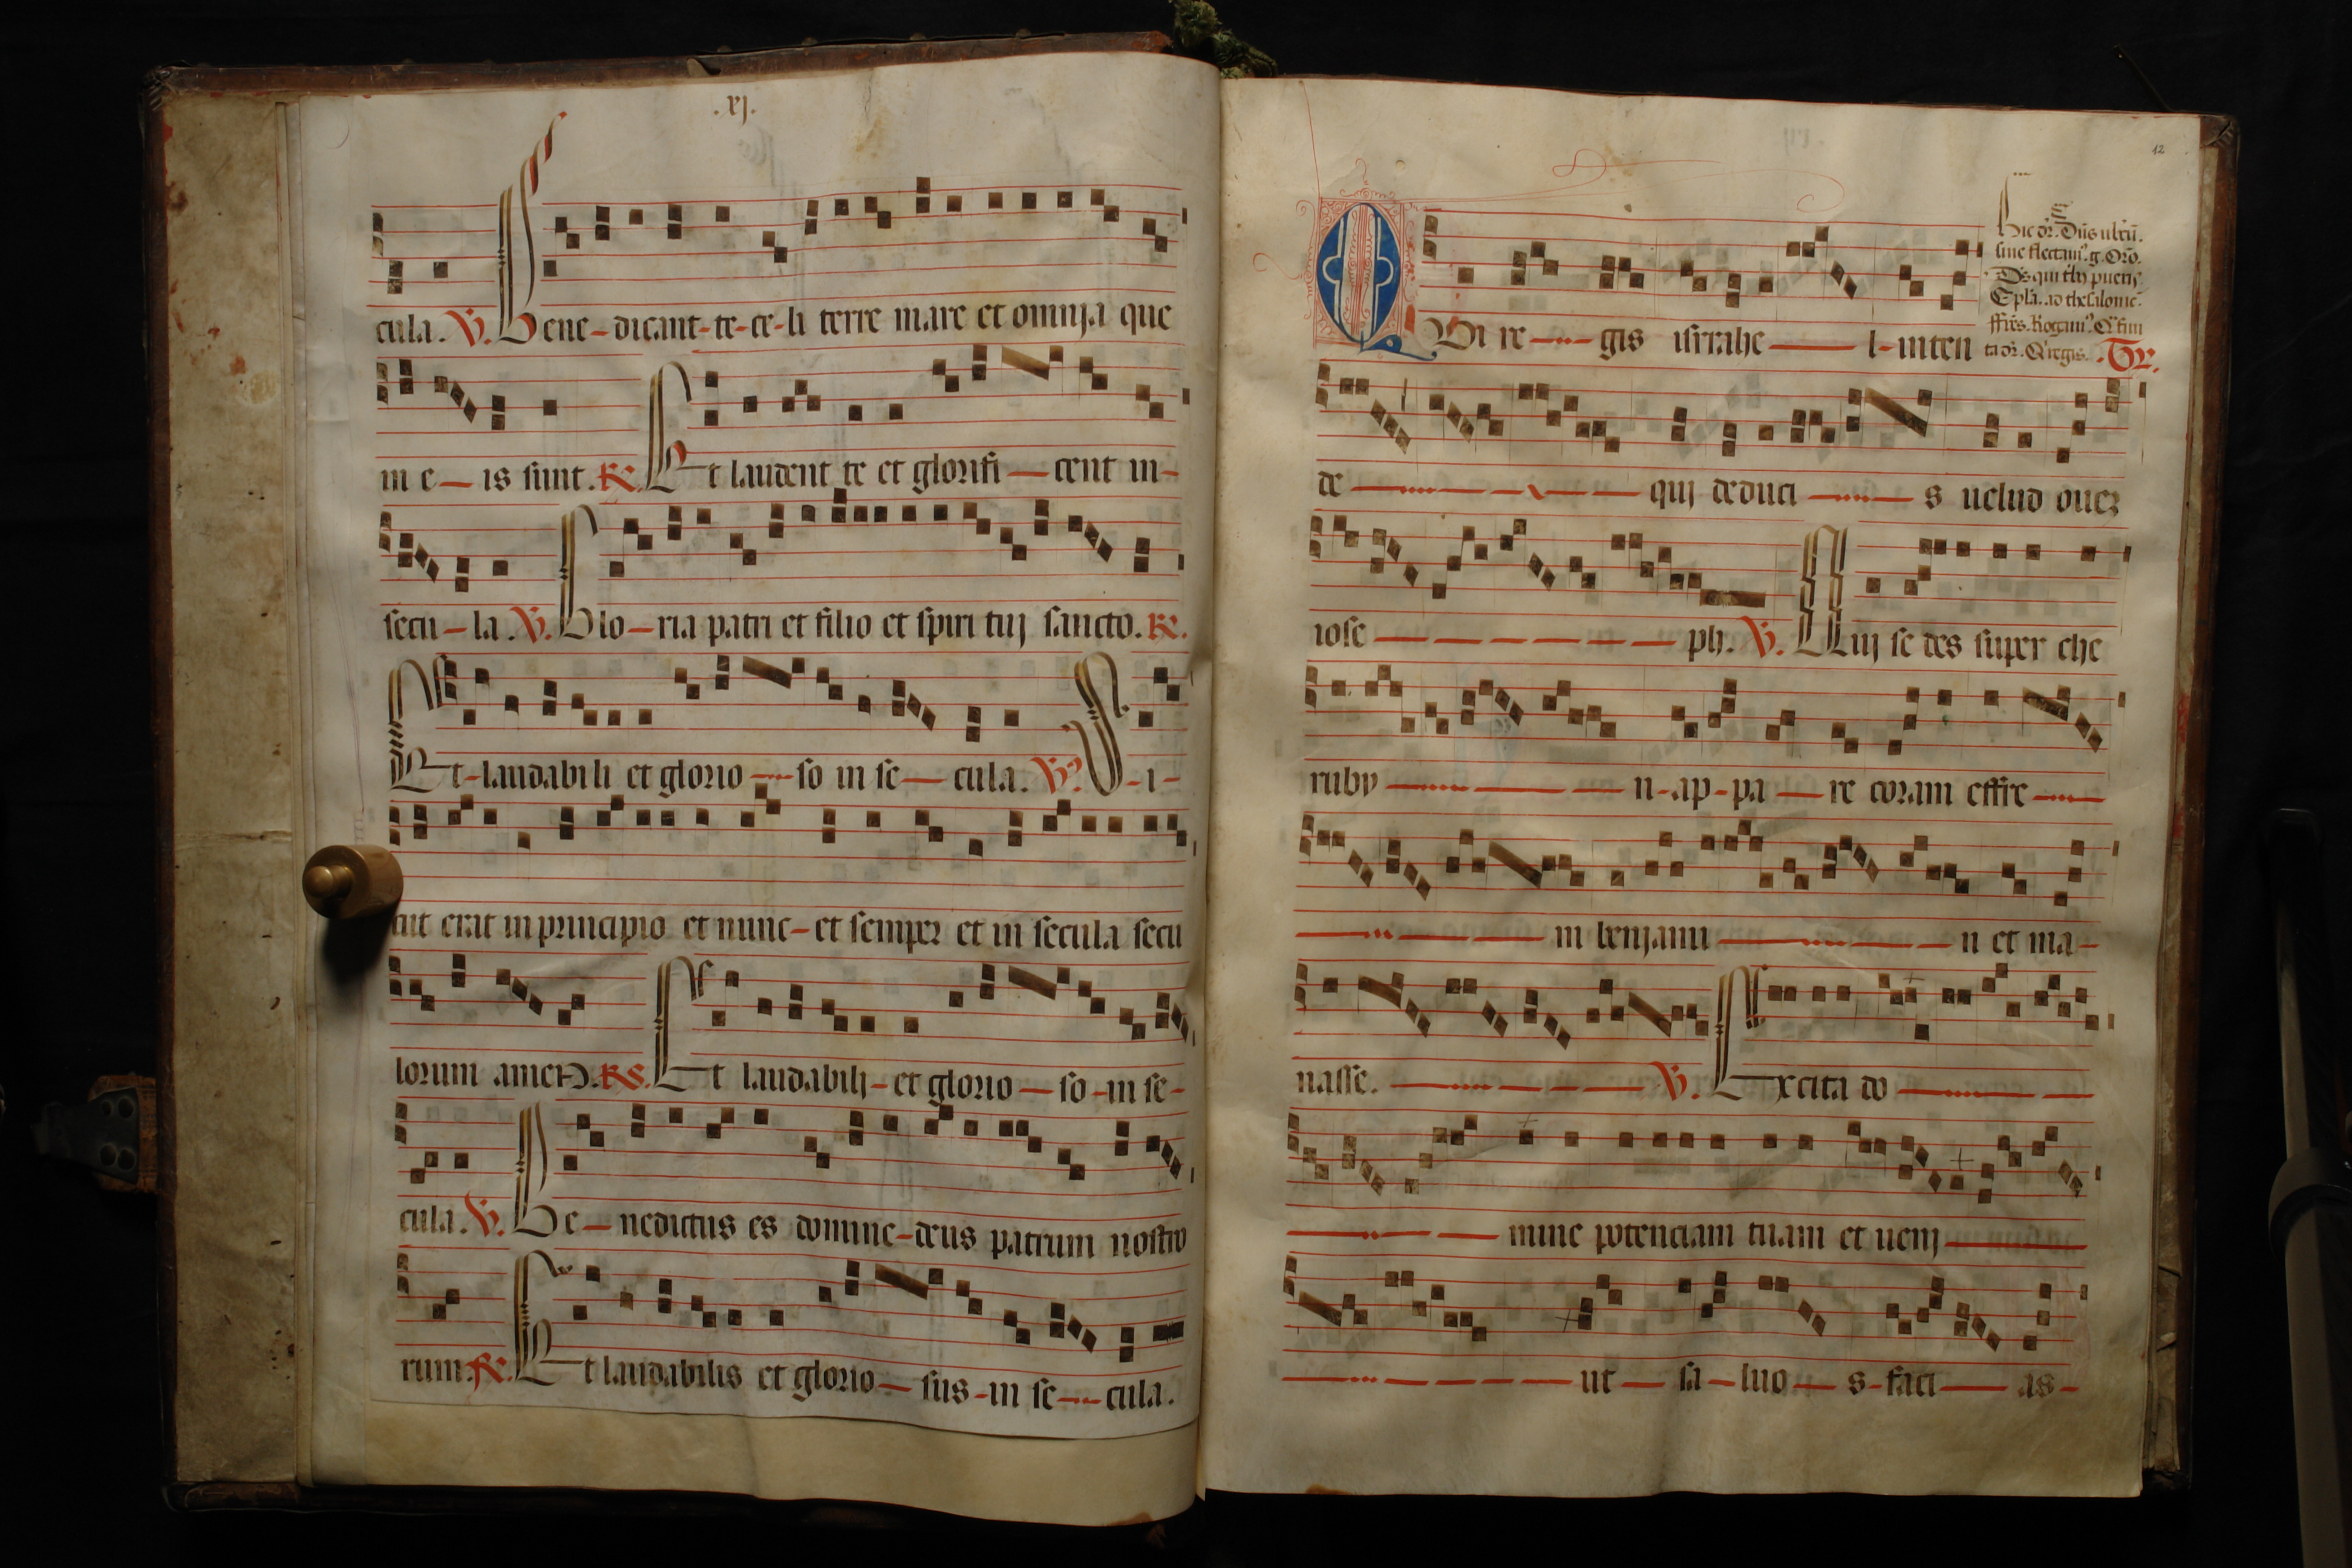 .xj.
cula. V. Bene-dicant-te-ce-li terre mare et omnia que
in e-is sunt. R. Et laudent te et glorifi-cent in-
secu-la. V. Glo-ria patri et filio et spiri tuj sancto. R.
Et-laudabili et glorio-so in se-cula. V. S-i-
cut erat in principio et nunc-et semper et in secula secu
lorum amen. R. Et laudabilj-et glorio-so-in se-
cula. V. Be-nedictus es domine-deus patrum nostro
rum. R. Et laudabilis et glorio-sus-in se-cula.
12
Hic dr. Dns
sine flectam. g. Oro.
Ds. qui
Epla. ad thesalonic.
ffrs. Rogam.
Q regis. Tr.
QVi re-gis isrrahe-l-inten
de-quj deduci-s uelud ouez
iose-ph. V. Quj se des super che
ruby-n-ap-pa-re coram effre-
m beniami-n et ma-
nasse. V. Excita do-
mine potenciam tuam et uenj
ut-sa-luo-s-faci-as-